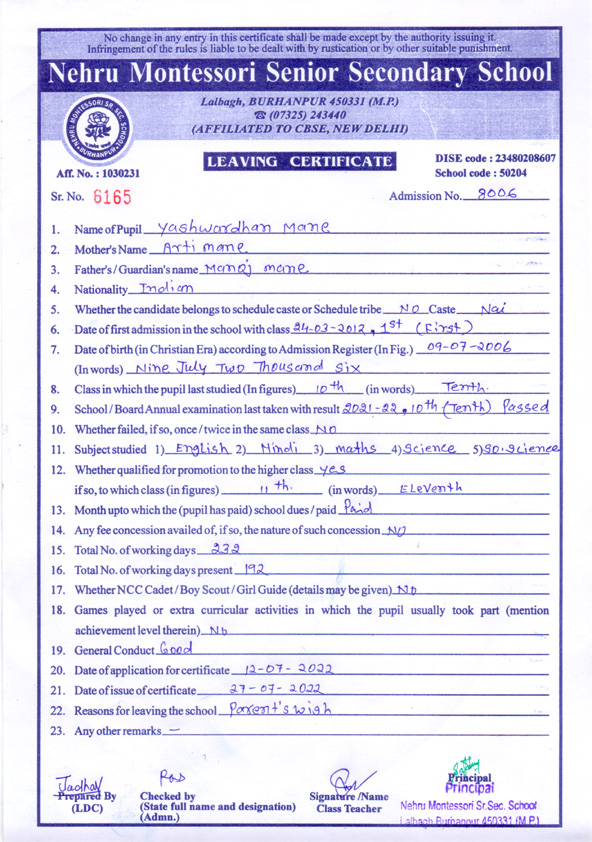 No change in any entry in this certificate shall be made except by the authority issuing it.
Infringement of the rules is liable to be dealt with by rustication or by other suitable punishment.
Nehru Montessori Senior Secondary School
Lalbagh, BURHANPUR 450331 (M.P.)
☎ (07325) 243440
(AFFILIATED TO CBSE, NEW DELHI)
NEHRU MONTESSORI SR. SEC. SCHOOL
BURHANPUR
LEAVING CERTIFICATE
DISE code : 23480208607
Aff. No. : 1030231
School code : 50204
Sr. No. 6165
Admission No. 8006
1. Name of Pupil Yashwardhan Mane
2. Mother's Name Arti mane
3. Father's / Guardian's name Manoj mane
4. Nationality Indian
5. Whether the candidate belongs to schedule caste or Schedule tribe NO Caste Nai
6. Date of first admission in the school with class 24-03-2012, 1st (First)
7. Date of birth (in Christian Era) according to Admission Register (In Fig.) 09-07-2006
(In words) Nine July Two Thousand Six
8. Class in which the pupil last studied (In figures) 10th (in words) Tenth.
9. School / Board Annual examination last taken with result 2021-22, 10th (Tenth) Passed
10. Whether failed, if so, once / twice in the same class NO
11. Subject studied 1) English 2) Hindi 3) maths 4) Science 5) SO. Science
12. Whether qualified for promotion to the higher class yes
if so, to which class (in figures) 11th. (in words) Eleventh
13. Month upto which the (pupil has paid) school dues / paid Paid
14. Any fee concession availed of, if so, the nature of such concession NO
15. Total No. of working days 232
16. Total No. of working days present 192
17. Whether NCC Cadet / Boy Scout / Girl Guide (details may be given) No
18. Games played or extra curricular activities in which the pupil usually took part (mention
achievement level therein) No
19. General Conduct Good
20. Date of application for certificate 12-07-2022
21. Date of issue of certificate 27-07-2022
22. Reasons for leaving the school Parent's wish
23. Any other remarks —
Jadhav
Prepared By
(LDC)
Checked by
(State full name and designation)
(Admn.)
Signature /Name
Class Teacher
Principal
Principal
Nehru Montessori Sr.Sec. School
Lalbagh Burhanpur 450331 (M.P.)